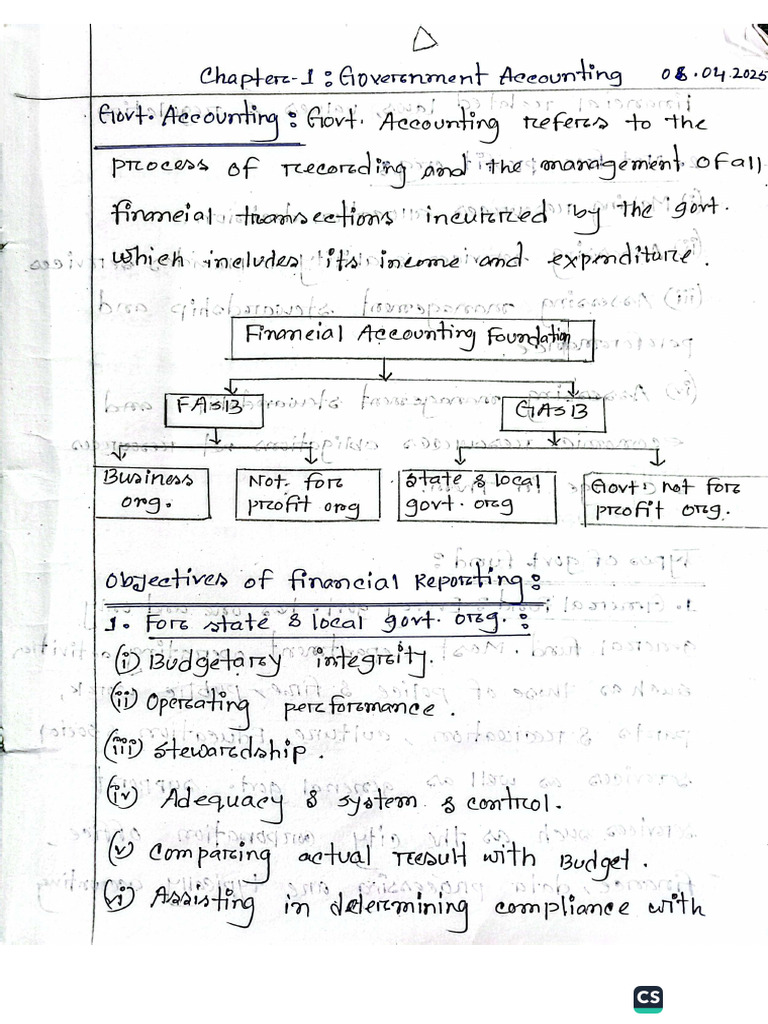 Chapter-1: Government Accounting 08.04.2025
Govt. Accounting: Govt. Accounting refers to the
process of recording and the management of all
financial transections incurred by the govt.
which includes its income and expenditure.
Financial Accounting Foundation
FASB GASB
Business Not for State & local Govt. not for
org. profit org govt. org profit org.
Objectives of financial Reporting:
1. For state & local govt. org.:
(i) Budgetary integrity.
(ii) Operating performance.
(iii) Stewardship.
(iv) Adequacy & system & control.
(v) Comparing actual result with Budget.
(vi) Assisting in determining compliance with
CS